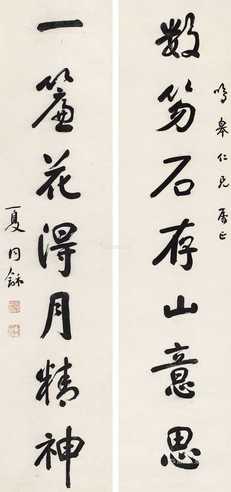 鳴皋仁兄屬正
數笏石存山意思
一簾花得月精神
夏同龢